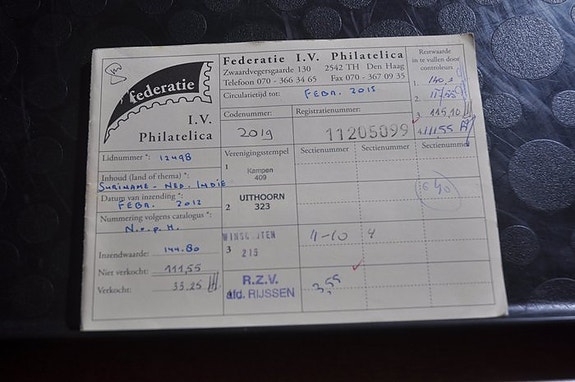 federatie
I.V.
Philatelica
Federatie I.V. Philatelica
Zwaardvegersgaarde 130 2542 TH Den Haag
Telefoon 070 - 366 34 65 Fax 070 - 367 09 35
Circulatietijd tot: FEBR. 2015
Restwaarde
in te vullen door
controleurs
1.
2.
3.
Codenummer: Registratienummer:
2019 11205099
Lidnummer *: 12498
Inhoud (land of thema) *:
SURINAME - NED. INDIE
Datum van inzending *:
FEBR. 2012
Nummering volgens catalogus *:
N.v.p.H.
Inzendwaarde: 144.80
Niet verkocht: 111,55
Verkocht: 33.25
Verenigingsstempel Sectienummer Sectienummer Sectienummer
1
Kampen
409
2
UITHOORN
323
3
215
R.Z.V.
afd. RIJSSEN
11-10
3,55